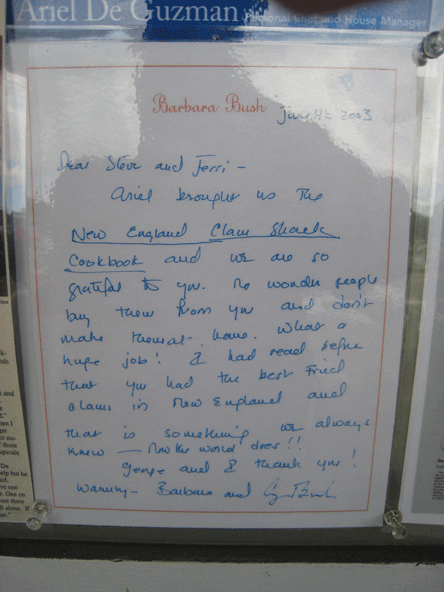 Ariel De Guzman Personal Chef and House Manager
Barbara Bush
June 4th 2003
Dear Steve and Terri -
Ariel brought us the
New England Clam Shack
Cookbook and we are so
grateful to you. No wonder people
buy them from you and don't
make them at home. What a
huge job! I had read before
that you had the best Fried
clams in New England and
that is something we always
knew — Now the world does!!
George and I thank you!
Warmly - Barbara and